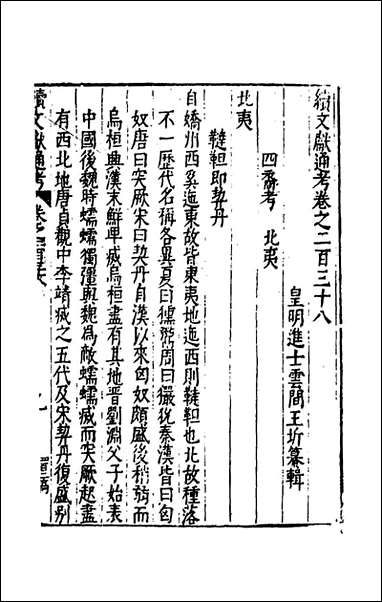 續文獻通考卷之二百三十八
皇明進士雲間王圻纂輯
四裔考 北夷
北夷
韃靼即契丹
自嬌州西奚迤東故皆東夷地迤西則韃靼也北故種落
不一歷代名稱各異夏曰獯鬻周曰玁狁秦漢皆曰匈
奴唐曰突厥宋曰契丹自漢以來匈奴頗盛後稍弱而
烏桓興漢末鮮卑滅烏桓盡有其地晉劉淵父子始表
中國後魏時蠕蠕獨彊與魏為敵蠕蠕滅而突厥起盡
有西北地唐貞觀中李靖滅之五代及宋契丹復盛別
續文獻通考 卷之